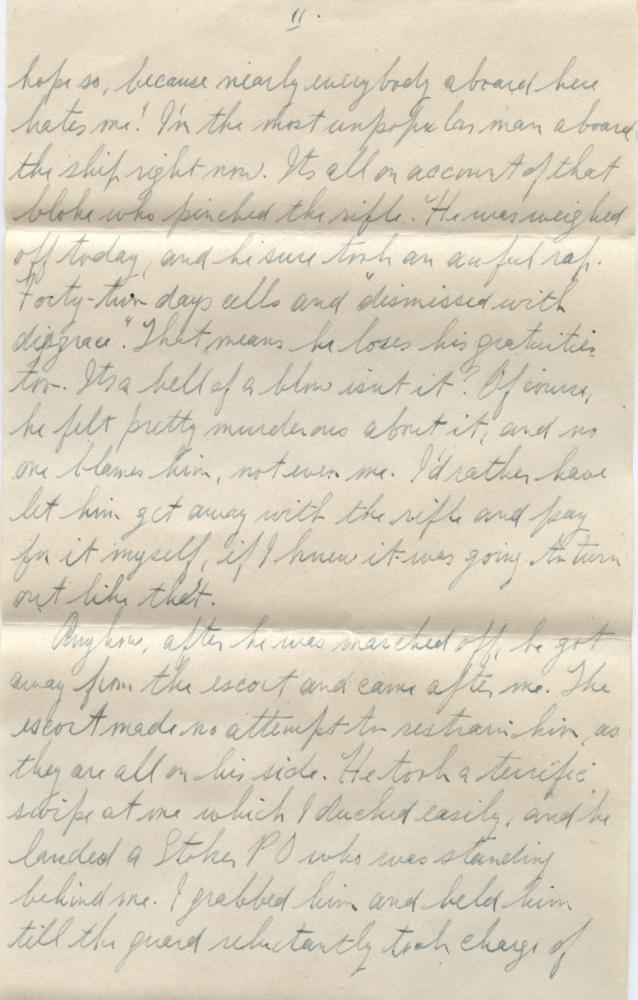 11.
hope so, because nearly everybody aboard here
hates me! I'm the most unpopular man aboard
the ship right now. Its all on account of that
bloke who pinched the rifle. He was weighed
off today, and he sure took an awful rap.
Forty-two days cells and "dismissed with
disgrace". That means he loses his gratuities
too. Its a hell of a blow isnt it? Of course,
he felt pretty murderous about it, and no
one blames him, not even me. I'd rather have
let him get away with the rifle and pay
for it myself, if I knew it was going to turn
out like that.
Anyhow, after he was marched off, he got
away from the escort and came after me. The
escort made no attempt to restrain him, as
they are all on his side. He took a terrific
swipe at me which I ducked easily, and he
landed a Stoker P O who was standing
behind me. I grabbed him and held him
till the guard reluctantly took charge of